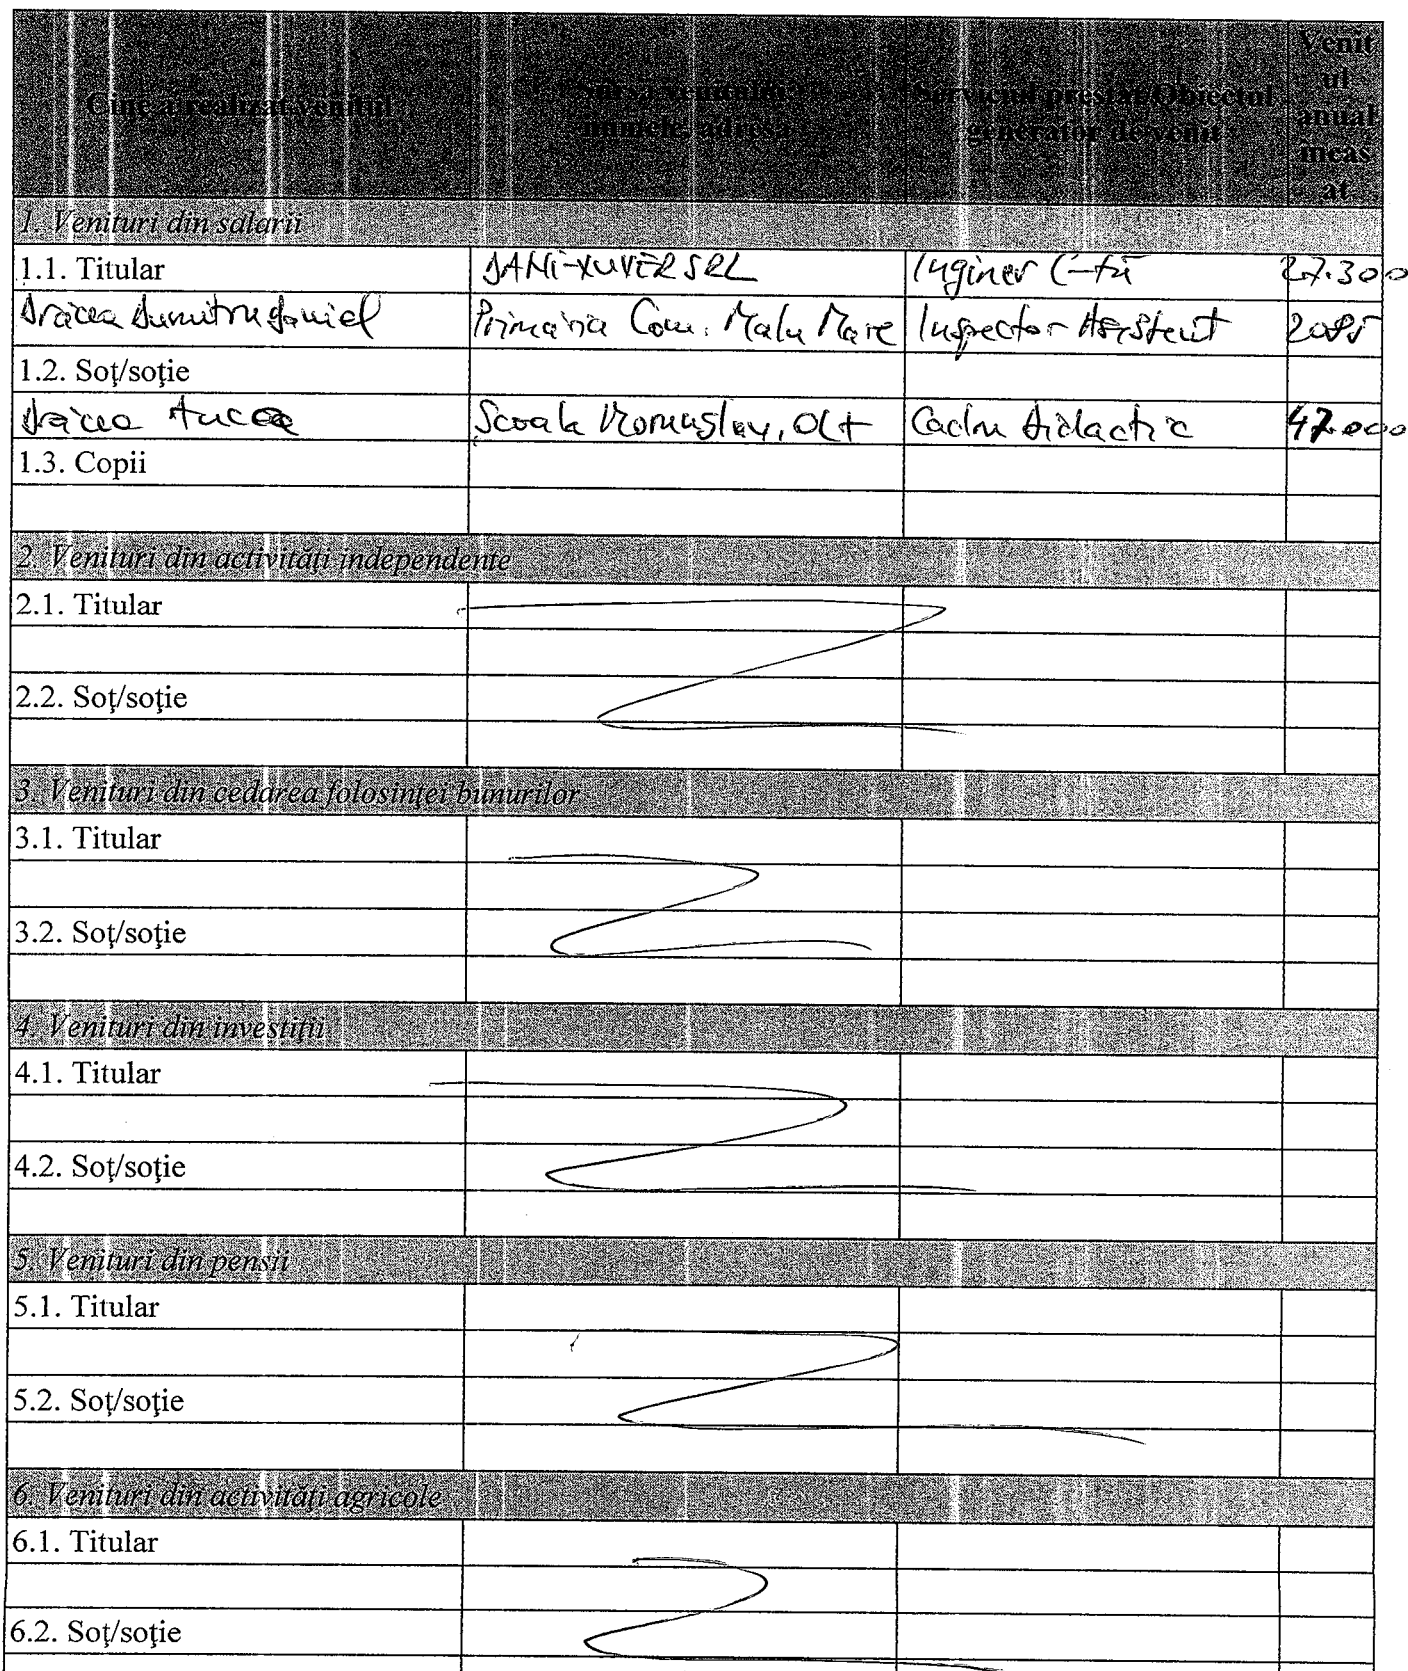 Cine a realizat venitul
Sursa venitului:
numele, adresa
Serviciul prestat/Obiectul
generator de venit
Venit
ul
anual
încas
at
1. Venituri din salarii
1.1. Titular DANI-XUVER SRL Inginer C-ții 27.300
Drăcea Dumitru Daniel Primăria Com. Malu Mare Inspector Asistent 2085
1.2. Soţ/soţie
Drăcea Scoala Olt Cadru Didactic 47.000
1.3. Copii
2. Venituri din activităţi independente
2.1. Titular
2.2. Soţ/soţie
3. Venituri din cedarea folosinţei bunurilor
3.1. Titular
3.2. Soţ/soţie
4. Venituri din investiţii
4.1. Titular
4.2. Soţ/soţie
5. Venituri din pensii
5.1. Titular
5.2. Soţ/soţie
6. Venituri din activităţi agricole
6.1. Titular
6.2. Soţ/soţie